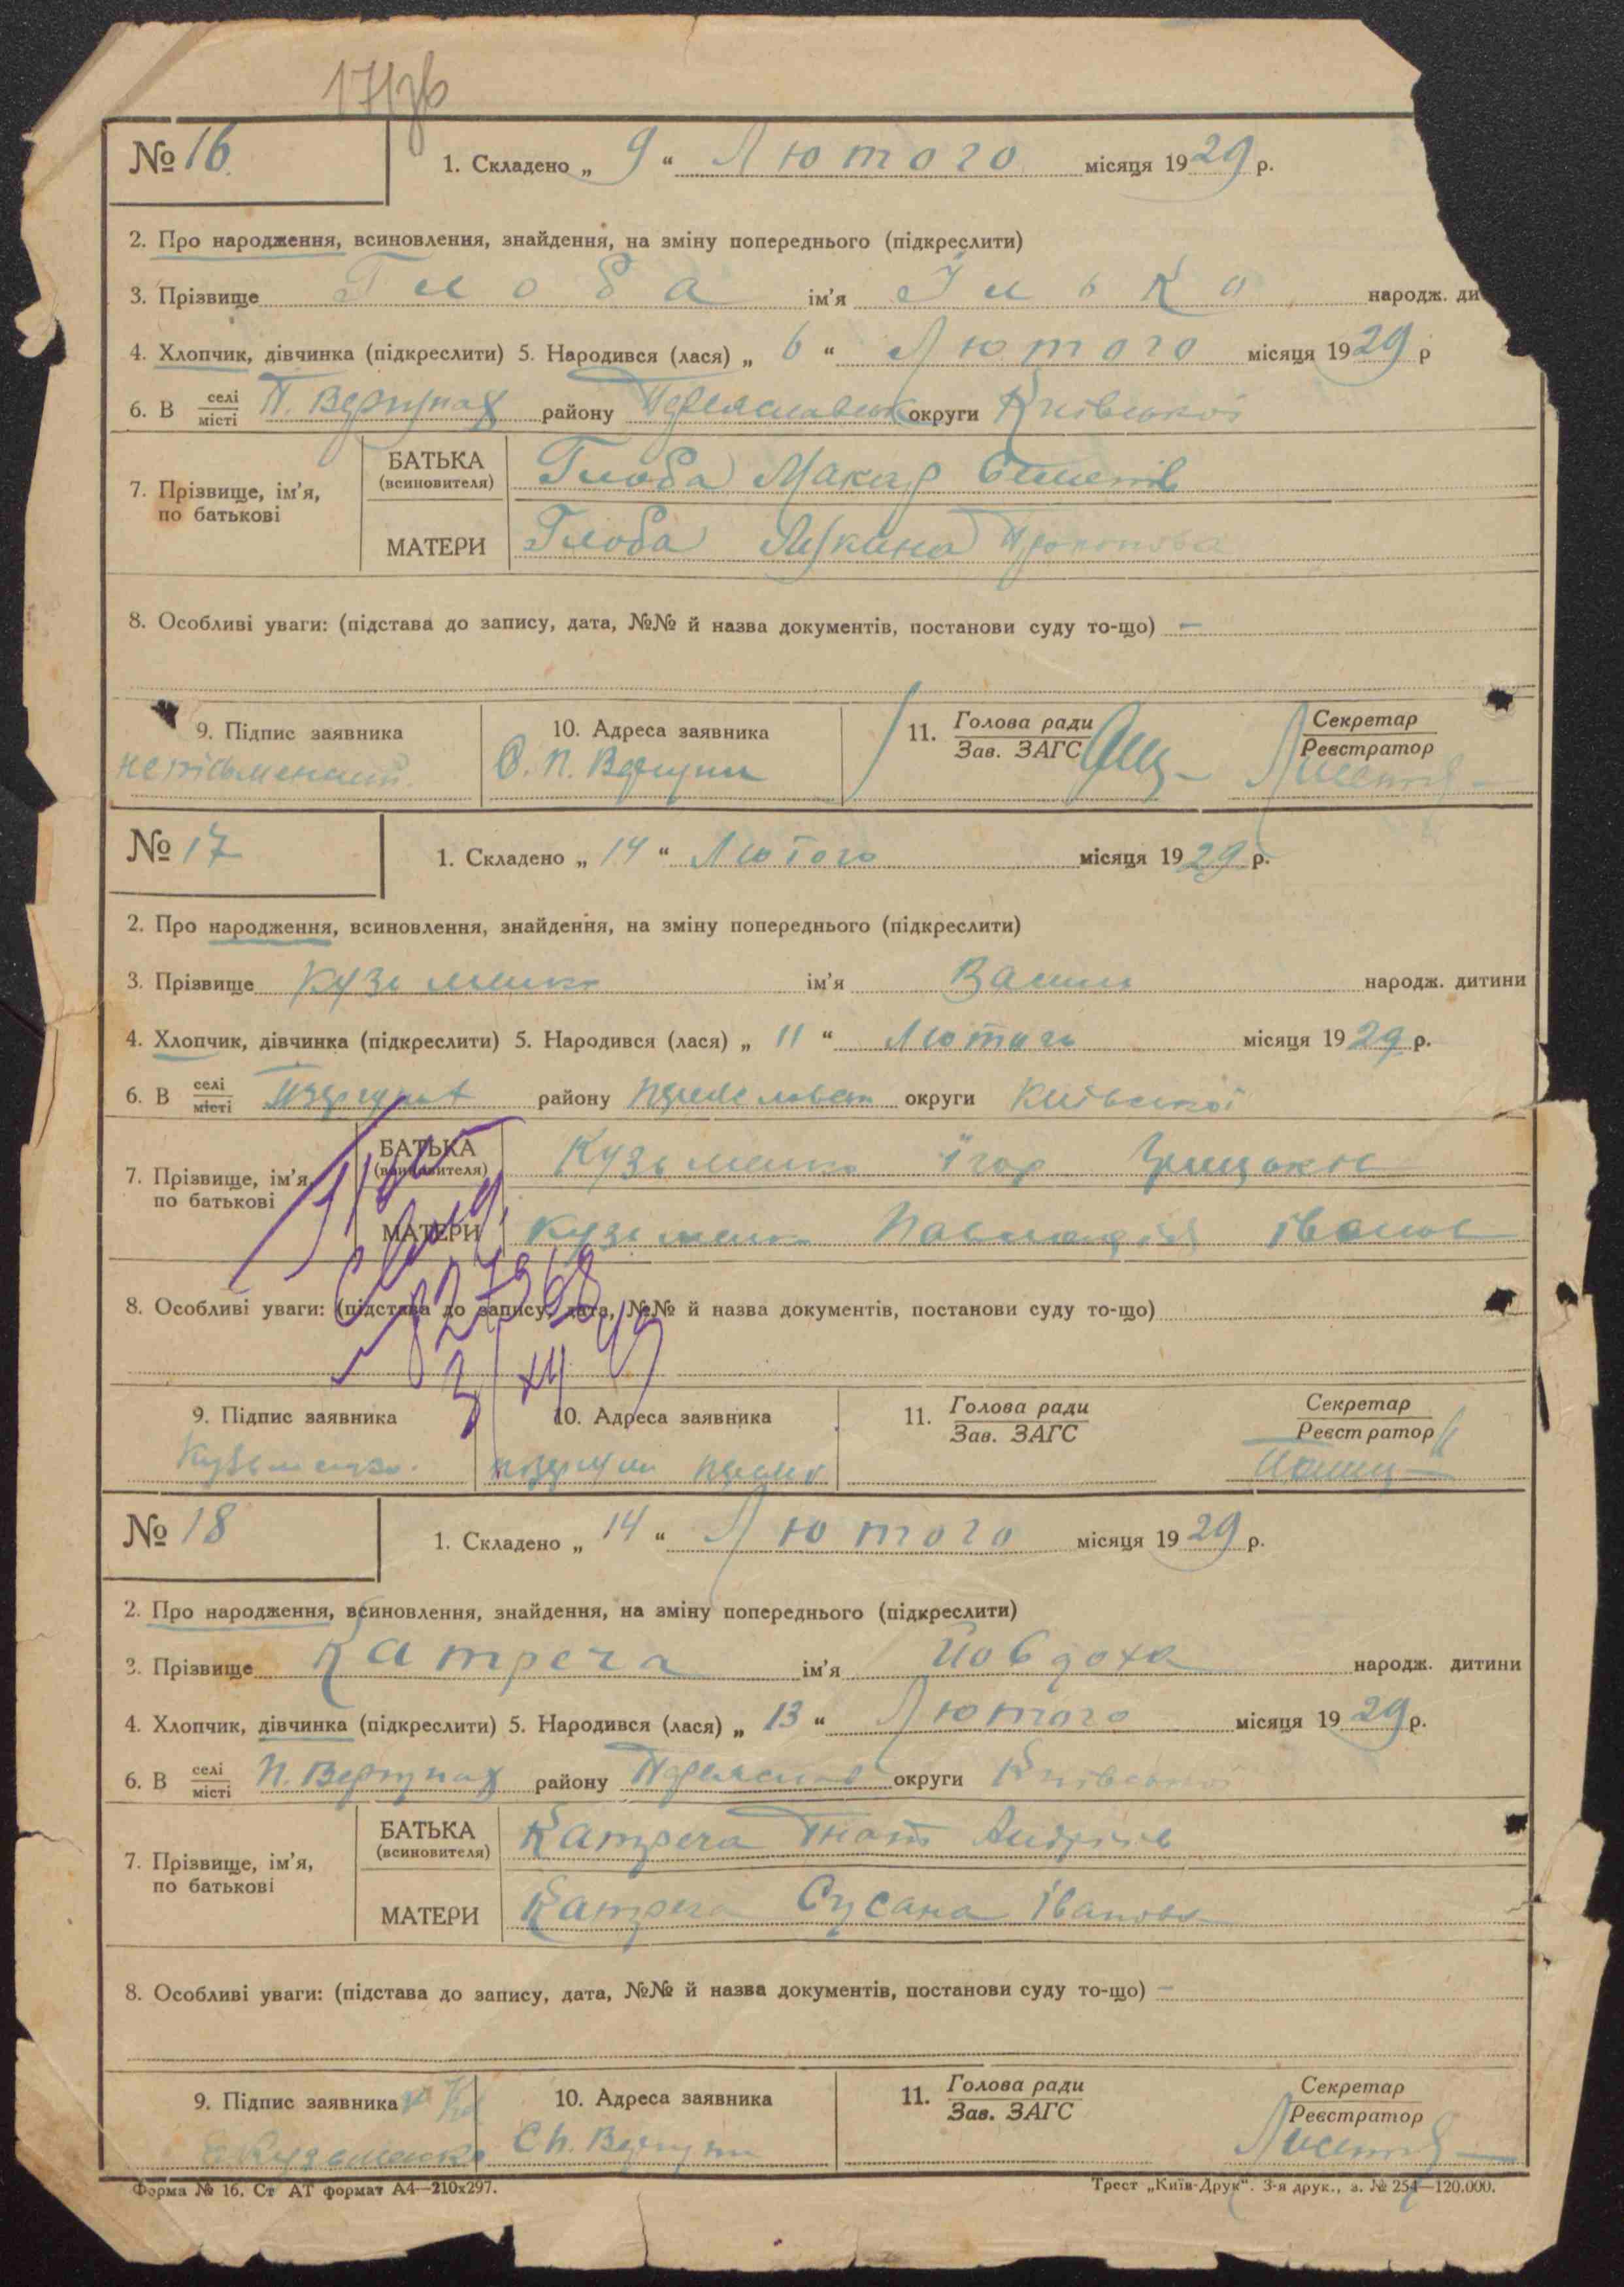 17
№ 16.
1. Складено „ 9 “ Лютого місяця 1929 р.
2. Про народження, всиновлення, знайдення, на зміну попереднього (підкреслити)
3. Прізвище Глоба ім'я Ілько народж. ди
4. Хлопчик, дівчинка (підкреслити) 5. Народився (лася) „ 6 “ Лютого місяця 1929 р
6. В селі П. Вергунах району Переяславськ округи Київської
місті
7. Прізвище, ім'я, по батькові
БАТЬКА (всиновителя) Глоба Макар
МАТЕРИ Глоба Лукина Прокопова
8. Особливі уваги: (підстава до запису, дата, №№ й назва документів, постанови суду то-що) —
9. Підпис заявника
неписьменний.
10. Адреса заявника
С. П. Вергуни
11. Голова ради
Зав. ЗАГС
Секретар
Реєстратор
№ 17
1. Складено „ 14 “ Лютого місяця 1929 р.
2. Про народження, всиновлення, знайдення, на зміну попереднього (підкреслити)
3. Прізвище Кузьменко ім'я Василь народж. дитини
4. Хлопчик, дівчинка (підкреслити) 5. Народився (лася) „ 11 “ Лютого місяця 1929 р.
6. В селі району округи Київської
місті
7. Прізвище, ім'я, по батькові
БАТЬКА (всиновителя) Кузьменко Ігор Грицьков
МАТЕРИ Кузьменко Іванов
8. Особливі уваги: (підстава до запису, дата, №№ й назва документів, постанови суду то-що)
9. Підпис заявника
Кузьменко.
10. Адреса заявника
11. Голова ради
Зав. ЗАГС
Секретар
Реєстратор
№ 18
1. Складено „ 14 “ Лютого місяця 1929 р.
2. Про народження, всиновлення, знайдення, на зміну попереднього (підкреслити)
3. Прізвище Катреча ім'я Йовдоха народж. дитини
4. Хлопчик, дівчинка (підкреслити) 5. Народився (лася) „ 13 “ Лютого місяця 1929 р.
6. В селі П. Вергунах району Переяслав округи Київської
місті
7. Прізвище, ім'я, по батькові
БАТЬКА (всиновителя) Катреча Гнат Андріїв
МАТЕРИ Катреча Сусана Іванова
8. Особливі уваги: (підстава до запису, дата, №№ й назва документів, постанови суду то-що) —
9. Підпис заявника
Кузьменко
10. Адреса заявника
С П. Вергуни
11. Голова ради
Зав. ЗАГС
Секретар
Реєстратор
Форма № 16. Ст АТ формат А4—210х297.
Трест „Київ-Друк“. 3-я друк., з. № 254—120.000.